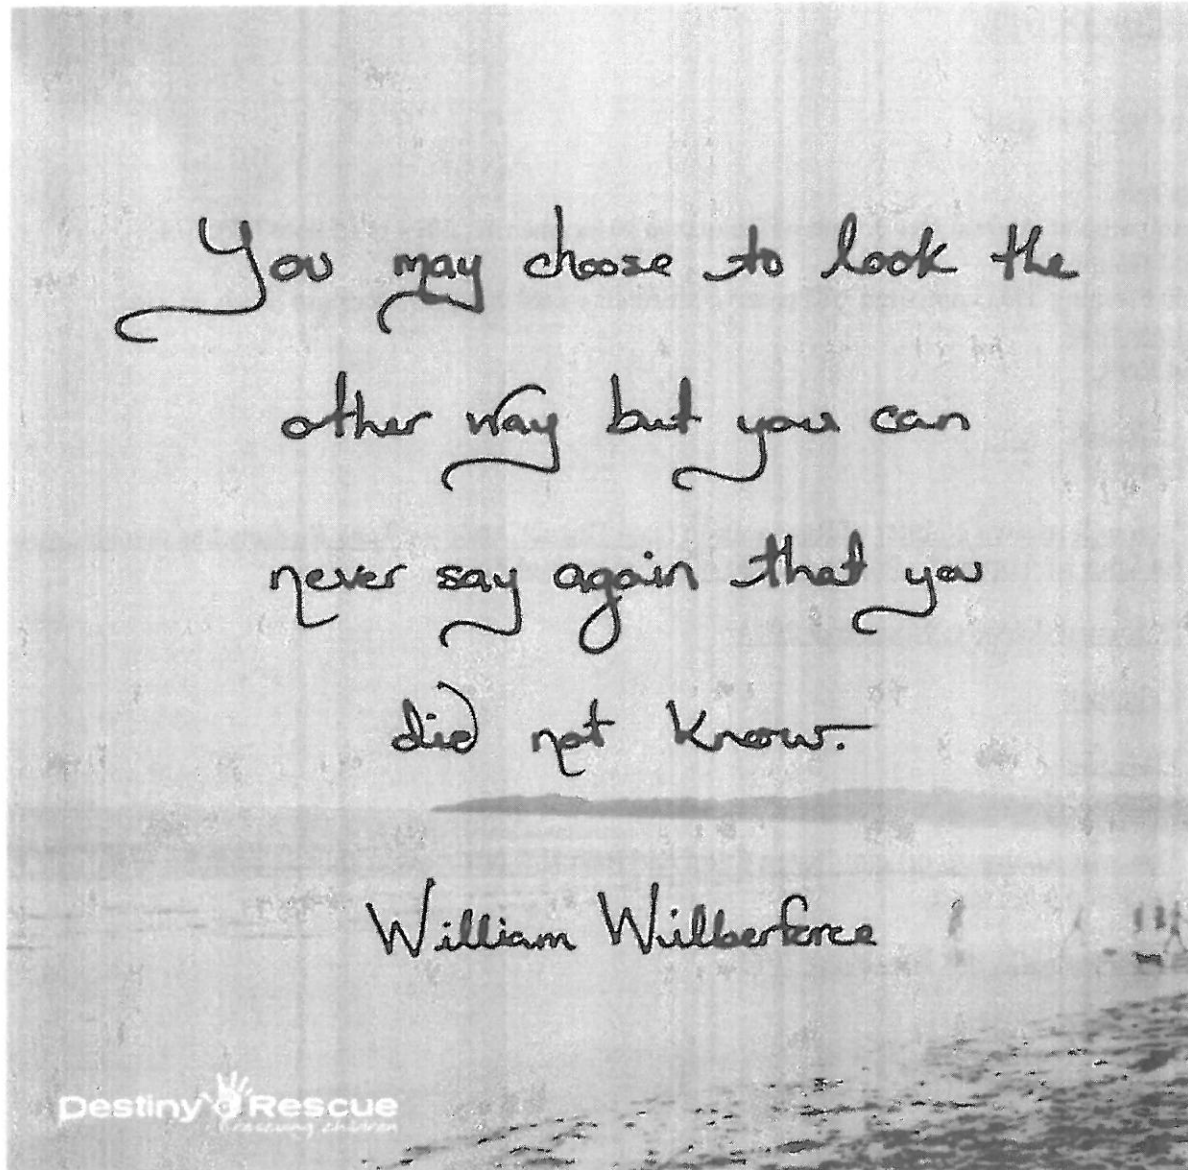 You may choose to look the
other way but you can
never say again that you
did not know.
William Wilberforce
Destiny Rescue
rescuing children